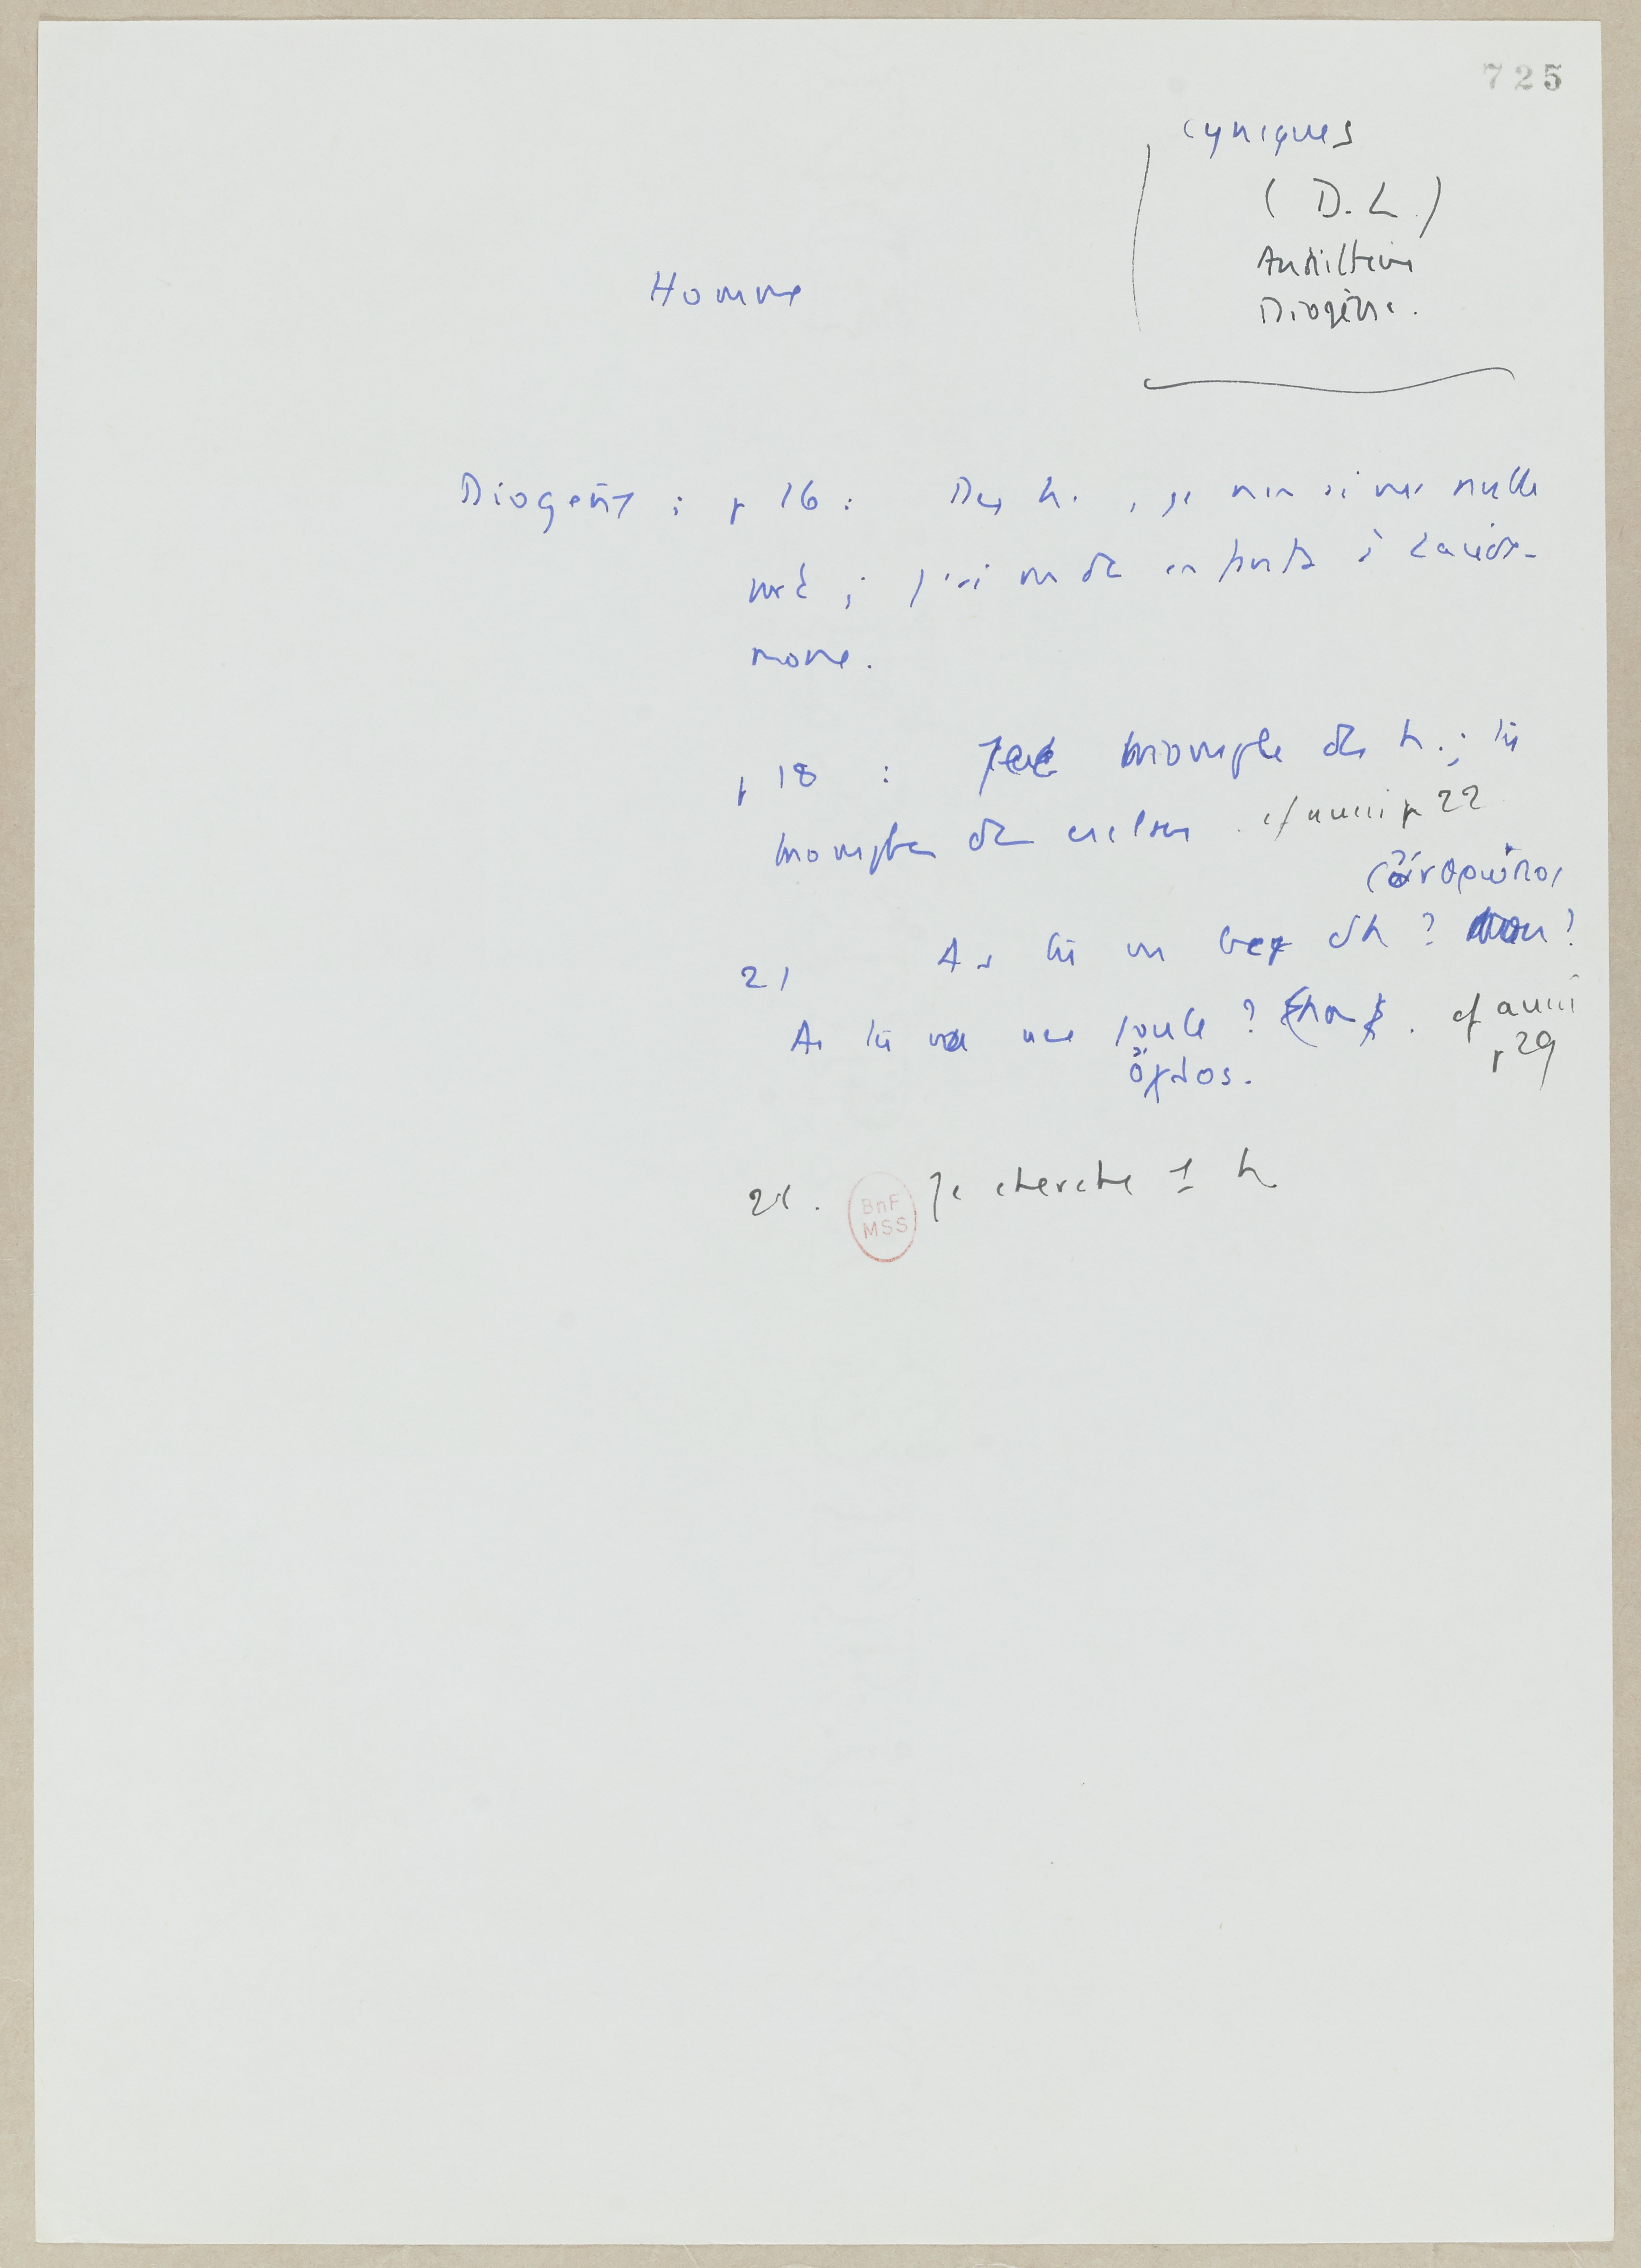 725
Cyniques
(D.L.)
Antisthène
Diogène.
Homme
Diogène ; p 16 : Des h., je n'en ai vu nulle
part ; j'ai vu des enfants à Lacédé-
mone.
p 18 : Je triomphe des h. ; tu
triomphes des esclaves. cf aussi p 22
(ἄνθρωποι
21 As tu vu bcp d'h ? Non !
As tu vu une foule ? . cf aussi
p 29
ὄχλος.
21. BnF MSS Je cherche 1 h